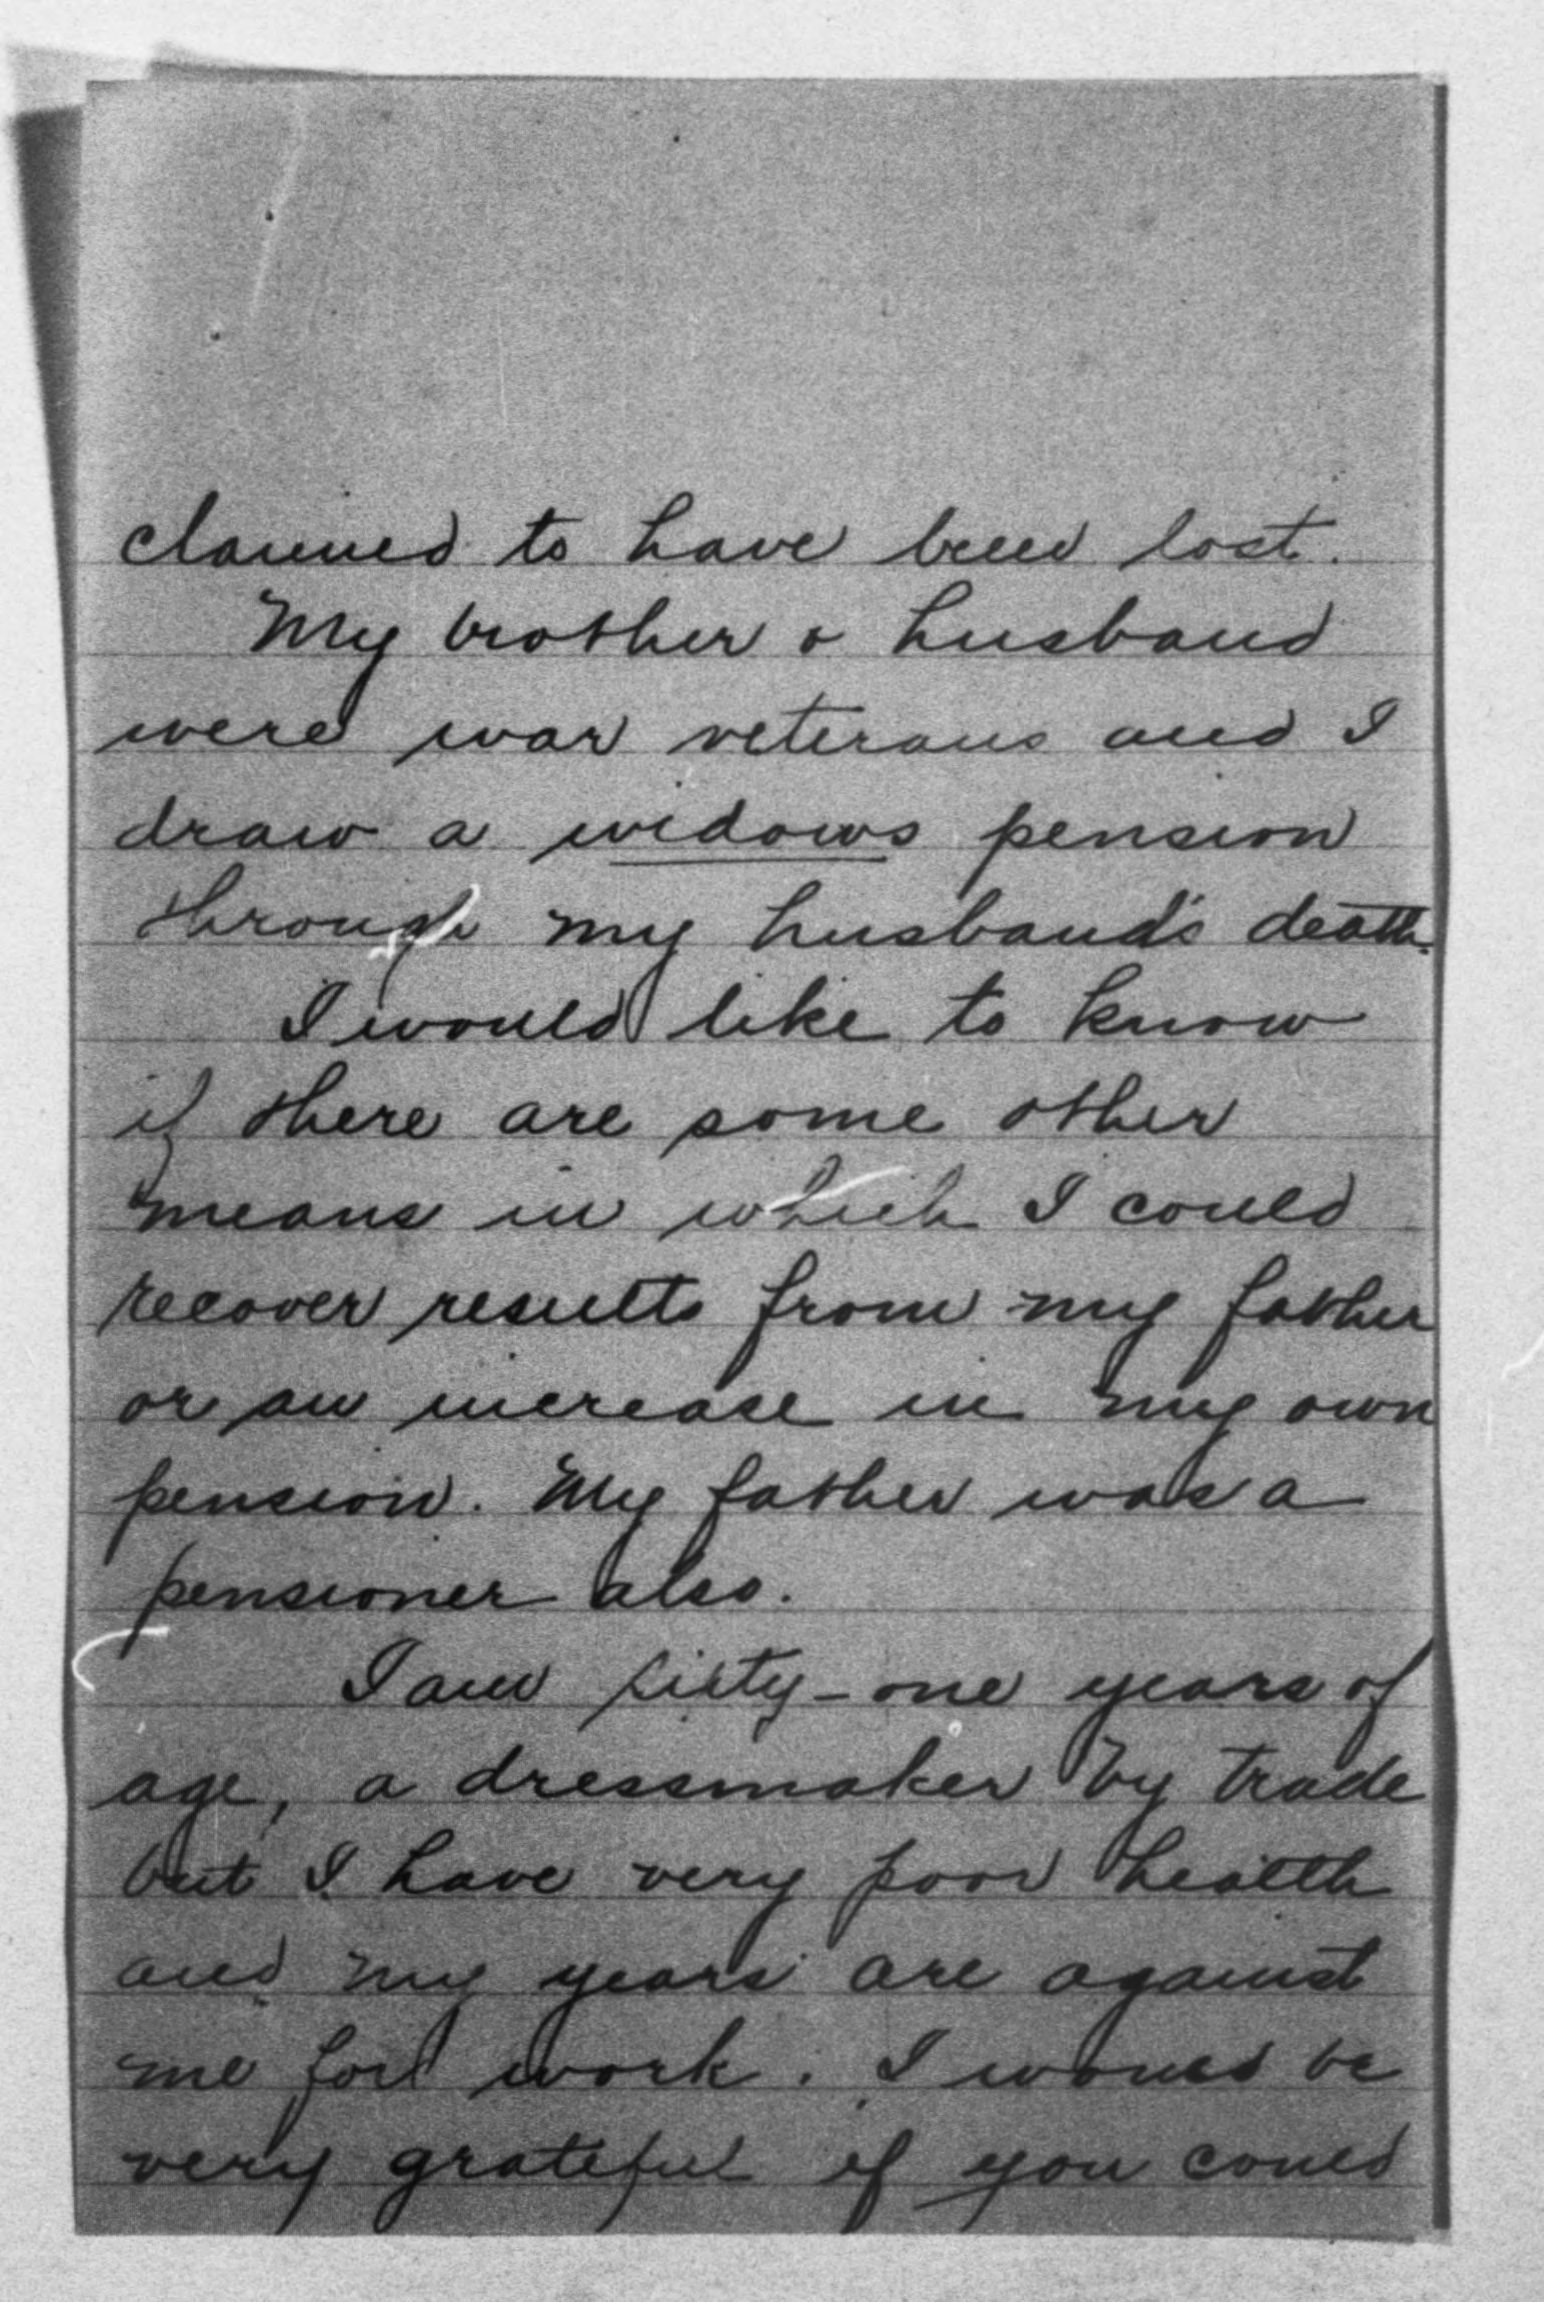 claimed to have been lost.
My brother & husband
were war veterans and I
draw a widows pension
through my husband's death.
I would like to know
if there are some other
means in which I could
recover results from my father
or an increase in my own
pension. My father was a
pensioner also.
I am sixty-one years of
age, a dressmaker by trade
but I have very poor health
and my years are against
me for work. I would be
very grateful if you could